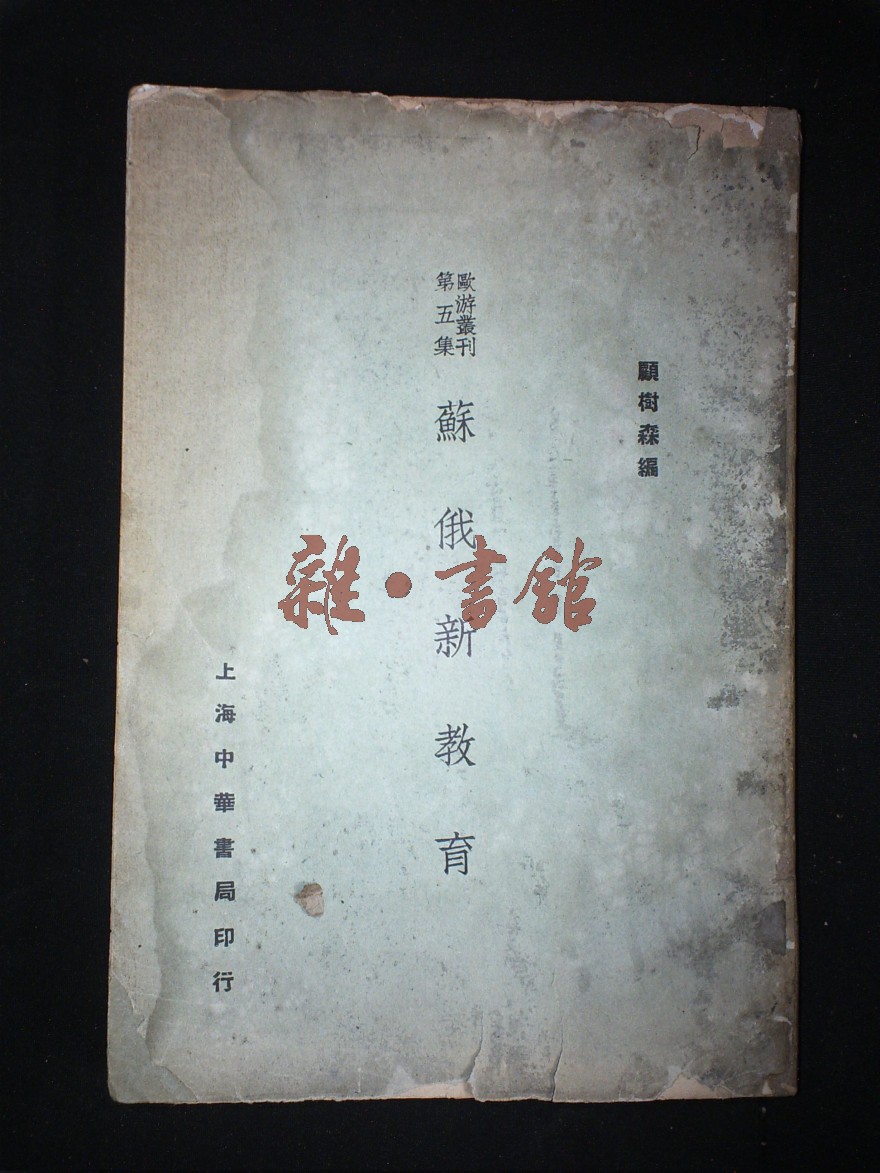 顧樹森編
歐游叢刊
第五集
蘇俄新教育
上海中華書局印行
雜·書館